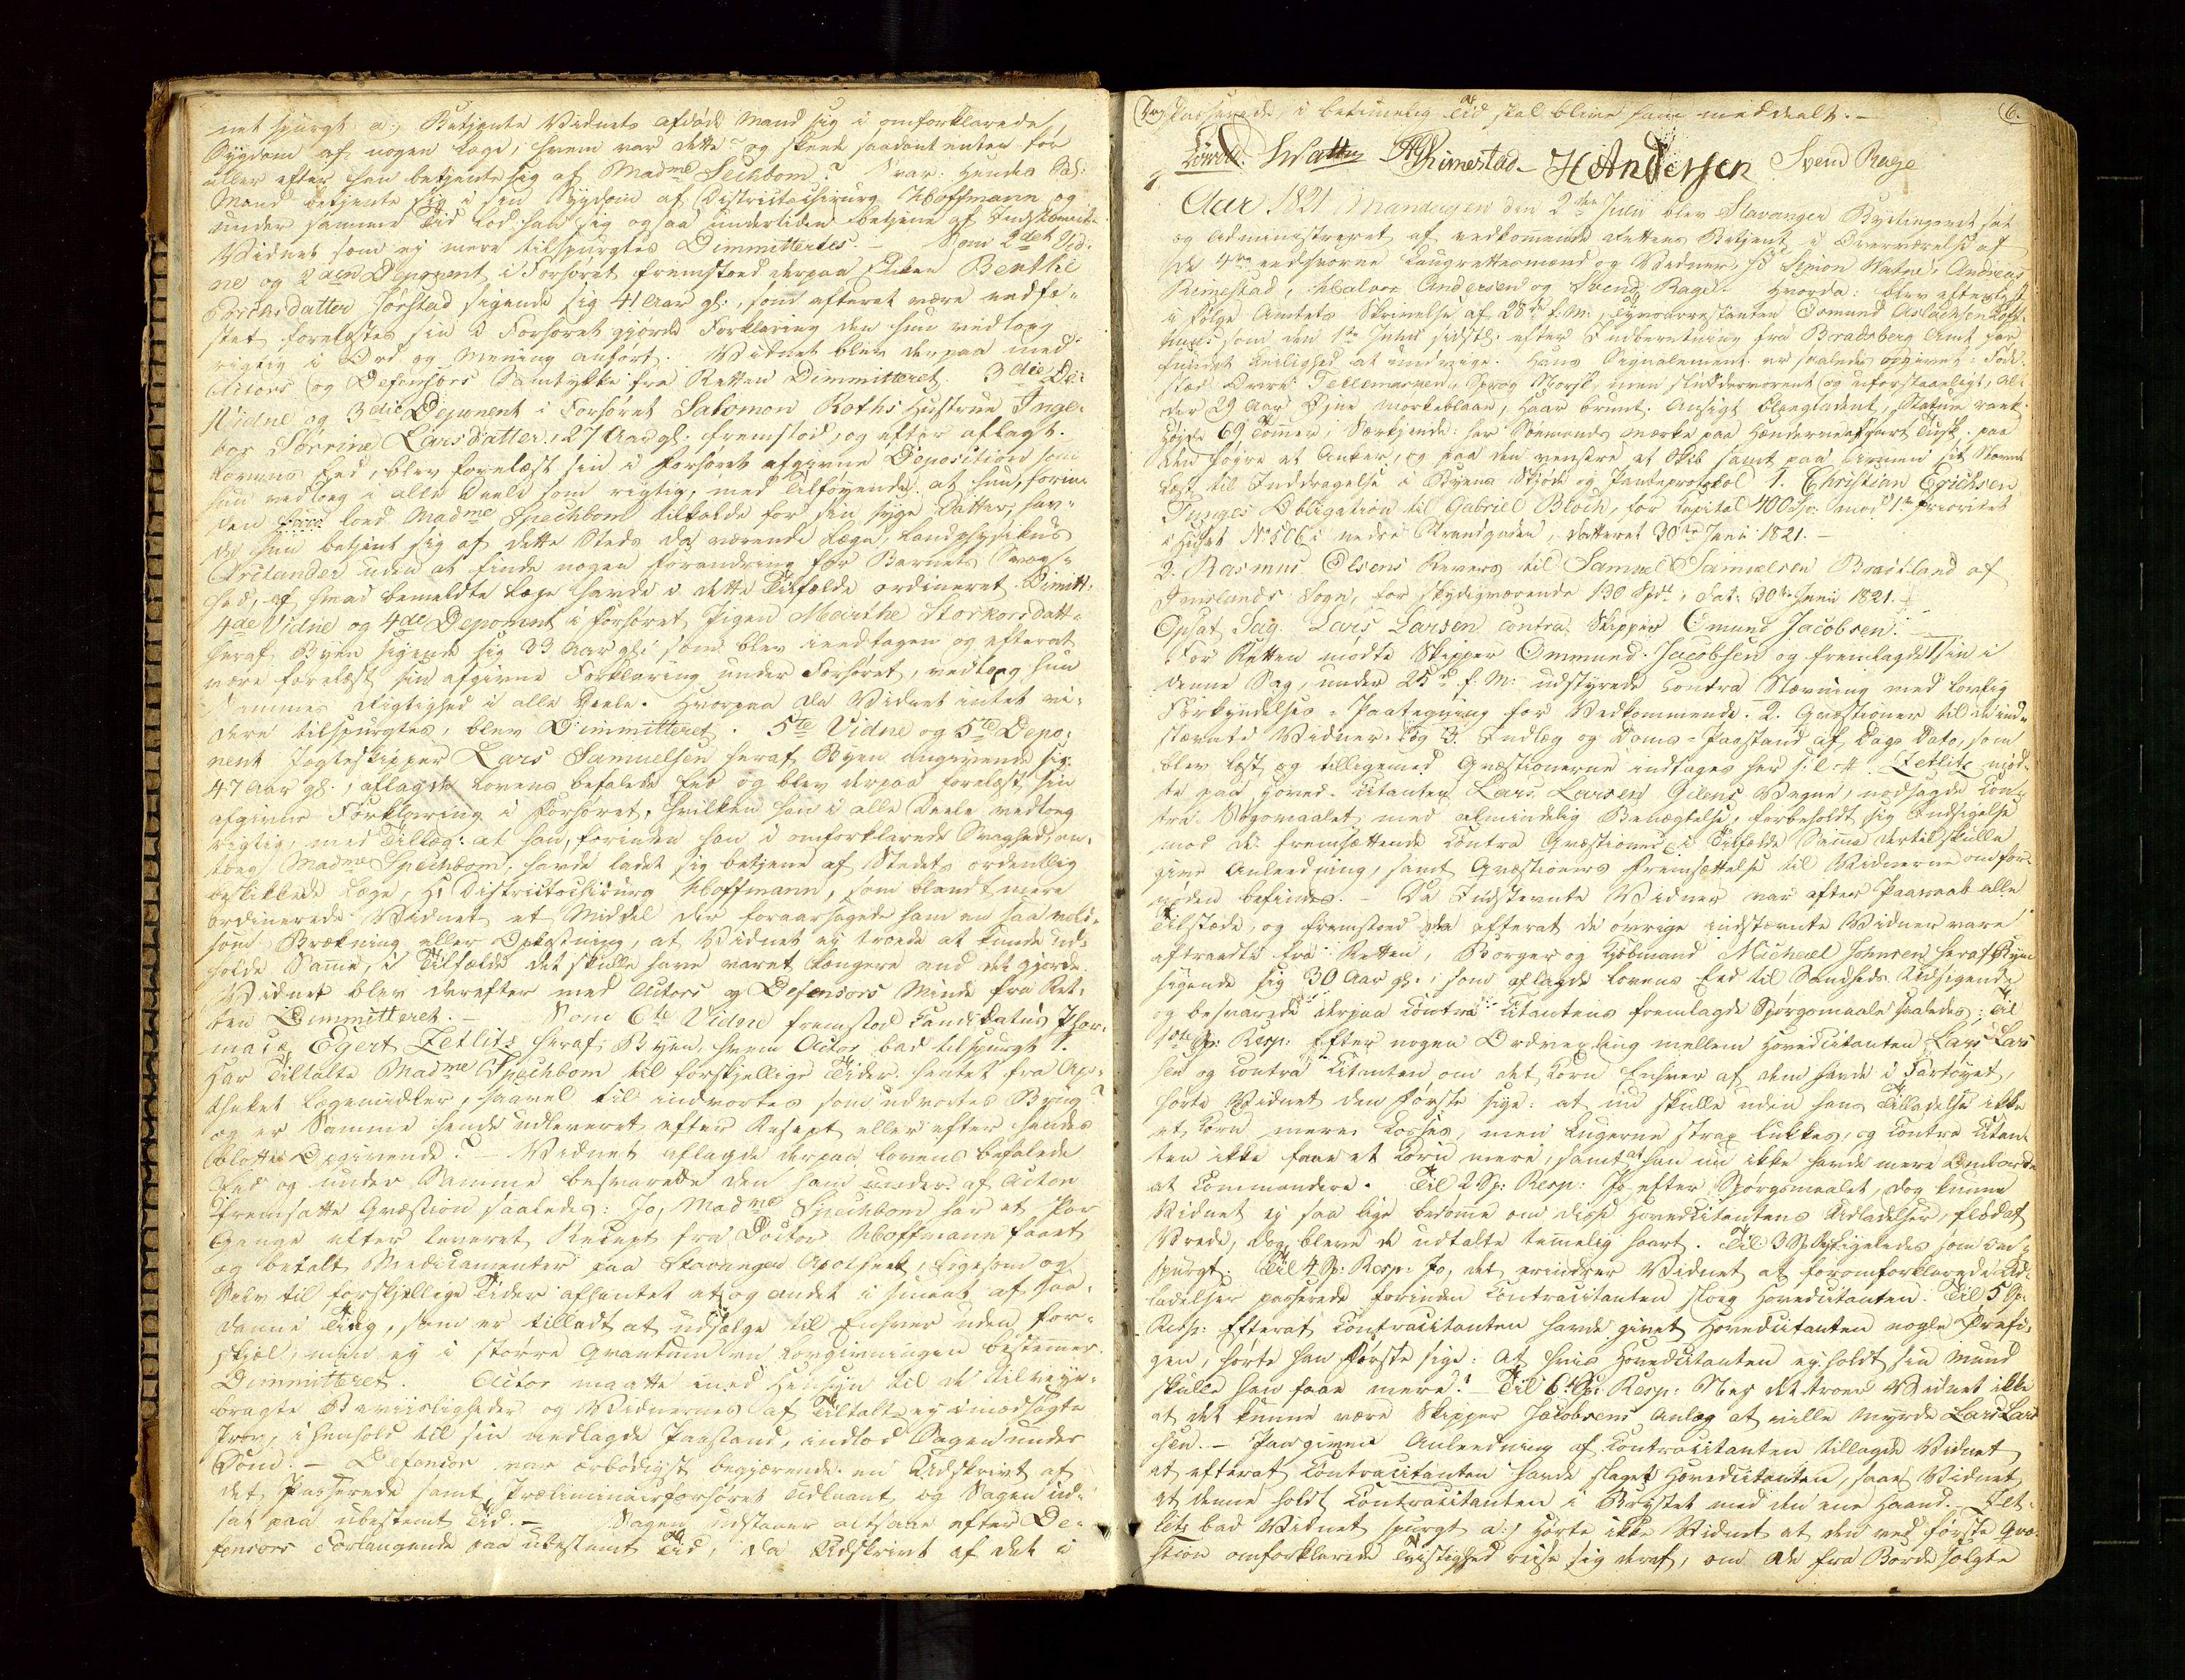 net spurgt a., Betjente Vidnets afdøde Mand sig i omforklarede
Sygdom af nogen Læge, hvem var dette? og skeede saadant enten før
eller efter han betjente sig af Mad<sup>me</sup> Sechbom? Svar: Hendes Sal:
Mand betjente sig i sin Sygdom af Districtschirurg Hoffmann og
under samme Tid lod han sig ogsaa underliden betjene af Indstævnte.
Vidnet som ej mere tilspurgtes Dimmittertes. – Som 2<sup>det</sup> Vid-
ne og 2<sup>den</sup> Deponent i Forhøret fremstoed derpaa Enken Benthe
Eriksdatter Sørstad sigende sig 41 Aar gl:, som efterat være eedfæ-
stet forelæstes sin i Forhøret gjorde Forklaring den hun vedtoeg
rigtig i Ord og Mening anført. Vidnet blev derpaa med
Actors og Defensors Samtykke fra Retten Dimmitteret. 3<sup>die</sup>
Vidne og 3<sup>die</sup> Deponent i Forhøret Salomon Roths Hustrue Inge-
bor Serrine Larsdatter, 27 Aar gl: fremstod, og efter aflagt
Lovens Eed, blev forelæst sin i Forhøret afgivne Deposition som
hun vedtoeg i alle Deele som rigtig, med Tilføyende: at hun, forin-
den loed Mad<sup>me</sup> Spechbom tilkalde for sin syge Datter, hav-
de hun betjent sig af dette Steds da værende Læge, Landphysikus
Arctander uden at finde nogen Forandring for Barnets Svag-
hed, af hvad bemeldte Læge havde i dette Tilfælde ordineret. Dimitt:
4<sup>de</sup> Vidne og 4<sup>de</sup> Deponent i Forhøret Pigen Marthe Storkorsdatt-
heraf Byen sigende sig 33 Aar gl: som blev ieedtagen og efterat
være forelæst sin afgivne Forklaring under Forhøret, vedtoeg hun
Sammes Rigtighed i alle Deele. Hvorpaa da Vidnet intet vi-
dere tilspurgtes, blev Dimmitteret. 5<sup>te</sup> Vidne og 5<sup>te</sup> Depo-
nent Jagteskipper Lars Samuelsen heraf Byen angivende sig
47 Aar gl:, aflagde Lovens befalede Eed og blev derpaa forelæst sin
afgivne Forklaring i Forhøret, hvilken han i alle Deele vedtoeg
rigtig, med Tillæg: at han, forinden han i omforklarede Svaghed an-
toeg Mad<sup>me</sup> Spechbom, havde ladet sig betjene af Stedets ordentlig
beskikkede Læge, Hr Districtschirurg Hoffmann, som blandt mere
ordinerede Vidnet et Middel der foraarsagede ham en saa vold-
som Brækning eller Opkastning, at Vidnet ej troede at kunde ud-
holde Samme, i Tilfælde det skulle have varet længere end det gjorde.
Vidnet blev derefter med Actors og Defensors Minde fra Ret-
ten Dimmitteret. – Som 6<sup>te</sup> Vidne fremstod Candidatus Phar-
maciæ Egert Zetlitz heraf Byen, hvem Actor bad tilspurgt 1.
Har Tiltalte Mad<sup>me</sup> Spechbom til forskjellige Tider hentet fra Apo-
theket Lægemidler, saavel til indvortes som udvortes Brug?
og er Samme hende udleveret efter Recept eller efter hendes
blotte Opgivende? – Vidnet aflagde derpaa Lovens befalede
Eed og under Samme besvarede den ham under 1 af Actor
fremsatte Qvæstion saaledes: Jo, Mad<sup>me</sup> Spechbom har et Par
Gange efter leveret Recept fra Doctor Hoffmann faaet
og betalt Medicamenter paa Stavanger Apothek, ligesom og
Selv til forskjellige Tider afhentet et og andet i smaat af saa-
danne Ting, som er tilladt at udsælge til Enhver uden For-
skjel, men ej i større Qvantum en Lovgivningen bestemer.
Dimmitteret. Actor maatte med Hensyn til de tilveye-
bragte Beviisligheder og Vidnernes af Tiltalte ej imodsagte
Prov, i Henhold til sin nedlagde Paastand, indlod Sagen under
Dom. – Defensor var ærbødigst begjærende en Udskrivt af
det Passerede samt Præliminairforhøret udlaant og Sagen ud-
sat paa ubestemt Tid. – Sagen udstaaer altsaa efter De-
fensors Forlangende paa ubestemt Tid, da Udskrivt af det i
Dag Passerede, i betimelig Tid skal blive ham meddeelt. – 6.
Löwold. SWatne ARimestad – HAndersen Svend Rage
Aar 1821 Mandagen den 2<sup>den</sup> Julii blev Stavanger Bytingsret sat
og Administreret af vedkommende Rettens Betjent i Overværelse af
de 4<sup>re</sup> eedsvorne Laugrettesmænd og Vidner, sc Simon Watne, Andreas
Rimestad, Halvor Andersen og Svend Rage. Hvorda: blev efterlyst
i Følge Amtets Skrivelse af 28<sup>de</sup> f. M:, Tyvsarrestanten Osmund Aslachsen
som den 1<sup>te</sup> Junii sidstl: efter Indberetning fra Bradsberg Amt har
fundet Leilighed at undvige. Hans Signalement er saaledes opgivet: Føde-
stæd Øvre Tellemarken, Sprog Norsk, men sluddervorent og uforstaaeligt, Al-
der 29 Aar Øjne mørkeblaae, Haar bruunt, Ansigt blegladent, Statur rank.
Højde 69 Tommer, Særkjende: har Sømands Mærke paa Hænderne af sort Tusk. paa
den højre et Anker, og paa den venstre et Skib samt paa Armen sit Navn.
Læst til Inddragelse i Byens Skjøde og Panteprotokol 1. Christian Erichsen
Tunges Obligation til Gabriel Bloch, for Capital 400 Spd: mod 1<sup>te</sup> Prioritet
i Huset No 506 i nedre Strandgaden, datteret 30<sup>te</sup> Juni 1821. –
2. Rasmus Olsens Revers til Samuel Samuelsen Brastland af
Imslands Sogn, for skyldigværende 130 Spd:, Dat: 30<sup>te</sup> Junii 1821. –
Opsat Sag. Lars Larsen contra Skipper Omund Jacobsen. –
For Retten mødte Skipper Ommund Jacobsen og fremlagde 1 sin i
denne Sag, under 25<sup>de</sup> f. M: udstyrede Contra Stævning med lovlig
Forkyndelses-Paategning for Vedkommende. 2. Qvæstioner til de ind-
stævnte Vidner. Og 3. Indlæg og Doms-Paastand af Dags Dato, som
blev læst og tilligemed Qvæstionerne indtages her s: l: # Zetlitz mød-
te paa Hoved-Citanten Lars Larsen Gilens Vegne, modsagde Con-
tra-Søgsmaalet med almindelig Benægtelse, forbeholdt sig Indsigelse
mod de fremsættende Contra Qvæstioner, i Tilfælde Samme dertil skulle
give Anleedning, samt Qvæstioners Fremsættelse til Vidnerne om for-
nøden befindes. – Da Indstævnte Vidner var efter Paaraab alle
Tilstæde, og fremstoed da efterat de øvrige indstævnte Vidner vare
aftraadte fra Retten, Borger og Kjøbmand Michael Johnsen heraf Byen
sigende sig 30 Aar gl: som aflagde Lovens Eed til Sandheds Udsigende
og besvarede derpaa Contra Citantens fremlagde Spørgsmaale saaledes: Til
1<sup>ste</sup> Sp: Resp: Efter nogen Ordvexling mellem Hovedcitanten Lars Lar-
sen og Contra Citanten om det Korn Enhver af dem havde i Fartøyet,
hørte Vidnet den Første sige: at nu skulle uden hans Tilladelse ikke
et Korn mere losses, men Lugerne strax lukkes, og Contra Citan-
ten ikke faae et Korn mere, samt at han nu ikke havde mere Ombord
at Commandere. Til 2 Sp: Resp: Jo efter Spørgsmaalet, dog kunne
Vidnet ej saa lige bedømme om disse Hovedcitantens Udladelser, flød af
Vrede, dog bleve de udtalte temmelig haart. Til 3 Sp. Resp: ligeledes som Ind-
spurgt. Til 4 Sp: Resp: Jo, det erindrer Vidnet at foromforklarede Ud-
ladelser passerede forinden Contracitanten sloeg Hovedcitanten. Til 5 Sp:
Resp: Efterat Contracitanten havde givet Hovedcitanten nogle Ørefi-
gen, hørte han Første sige: at hvis Hovedcitanten ej holdt sin Mund
skulle han faae mere. – Til 6<sup>te</sup> Sp: Resp: Nej det troer Vidnet ikke
at det kunne være Skipper Jacobsens Anlæg at ville Myrde Lars Lar-
sen. – Paa given Anleedning af Contracitanten tillagde Vidnet
at efterat Contracitanten havde slaget Hovedcitanten, saae Vidnet
at denne holdt Contracitanten i Brystet med den ene Haand. – Zet-
litz bad Vidnet spurgt a:, Hørte ikke Vidnet at den ved første Qvæ-
stion omforklarede Tvistighed reise sig deraf, om de fra Borde solgte